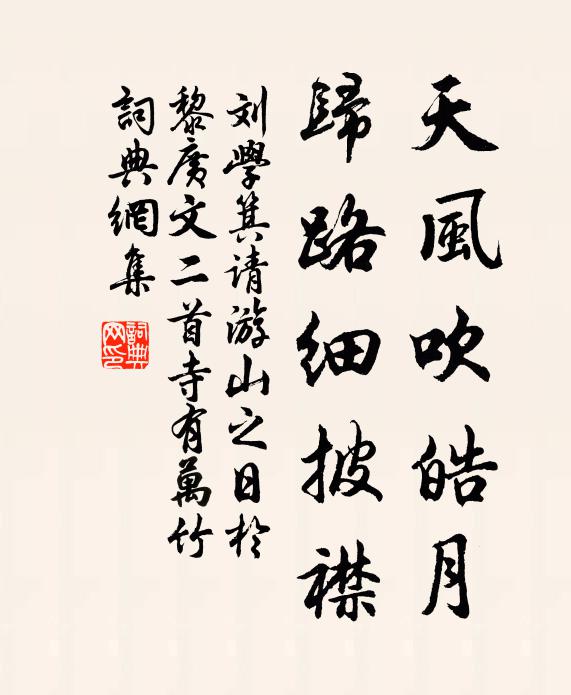 天風吹皓月
歸路細披襟
刘學箕请游山之日於
黎廣文二首寺有萬竹
詞典網集
詞典
网印